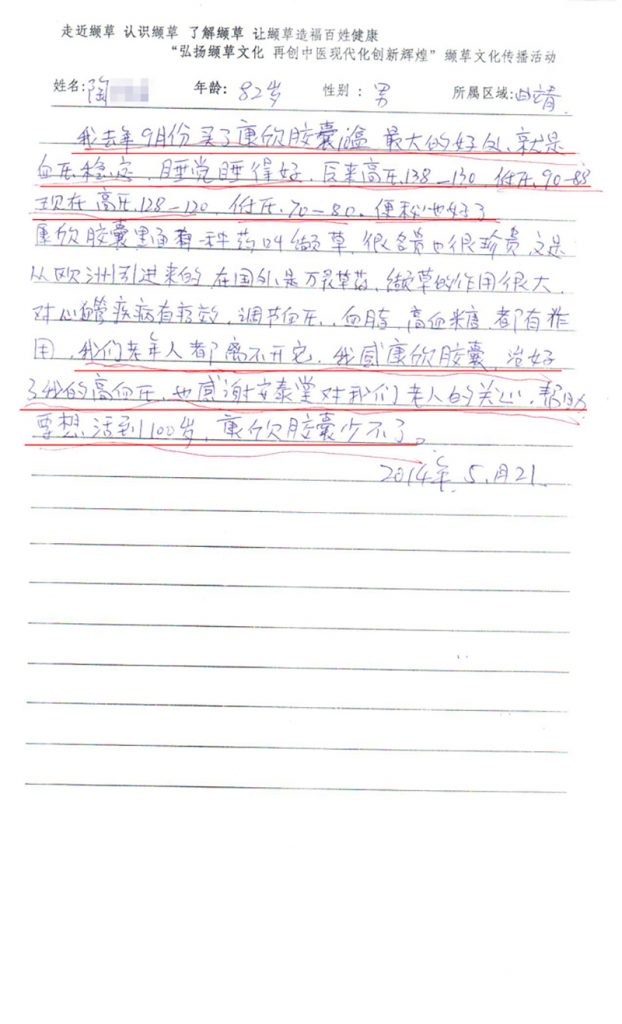 走近缬草 认识缬草 了解缬草 让缬草造福百姓健康
“弘扬缬草文化 再创中医现代化创新辉煌” 缬草文化传播活动
姓名:陶 年龄:82岁 性别:男 所属区域:曲靖
我去年9月份买了康欣胶囊 最大的好处,就是
血压稳定,睡觉睡得好,反来高压138—130 低压90—88
现在高压128—120,低压70—80.便秘也好了
康欣胶囊里面有一种药叫缬草,很名贵也很珍贵,这是
从欧洲引进来的,在国外是万灵草药,缬草的作用很大,
对心脑管疾病有疗效,调节血压,血脂,高血糖,都有作
用,我们老年人都离不开它,我感康欣胶囊,治好
了我的高血压,也感谢安泰堂对我们老人的关心,帮助
要想活到100岁,康欣胶囊少不了。
2014年5.月21